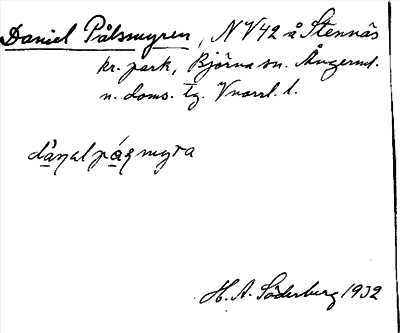 Daniel Pålsmyren, NV42 å Stennäs
kr. park, Björna sn. Ångerml.
n. doms. tg. Vnorrl. l.
H. A. Söderberg 1932